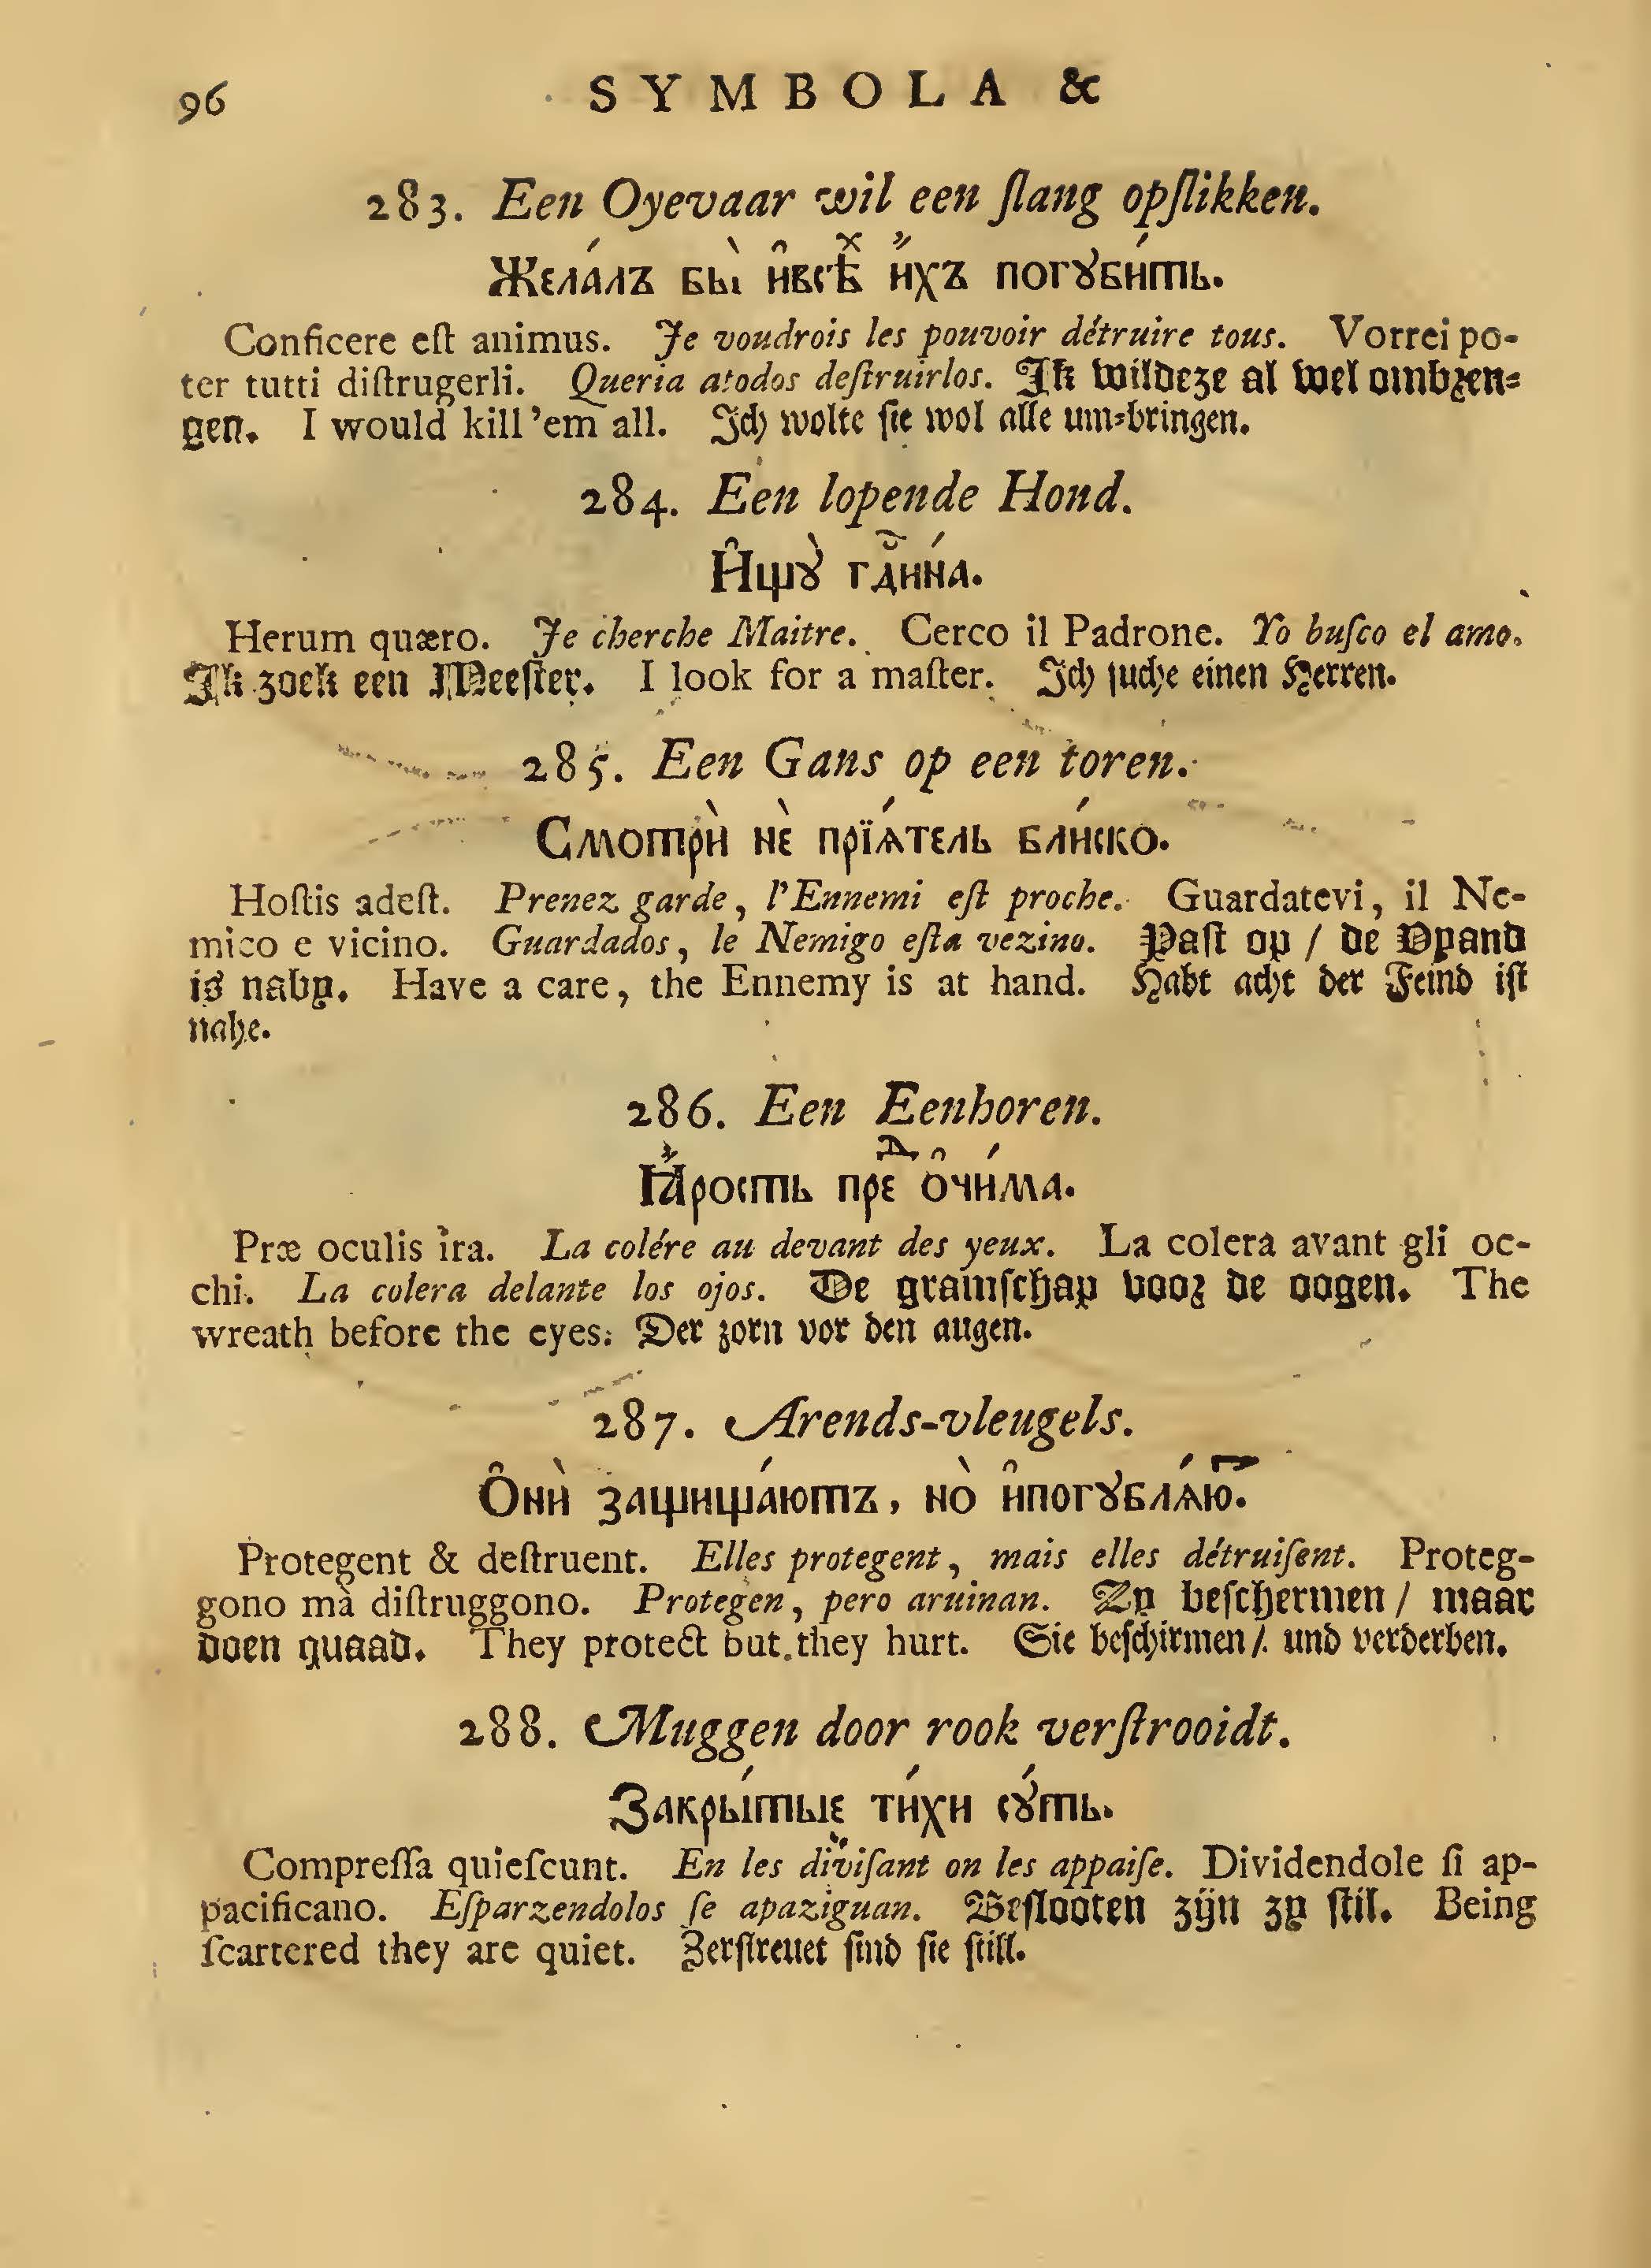 96 SYMBOLA &
283. Een Oyevaar wil een ſlang opſlikken.
Жела́лъ бы̀ и҆всѣⷯ и҆́хъ погꙋби́ть.
Conficere eſt animus. Je voudrois les pouvoir détruire tous. Vorrei po-
ter tutti diſtrugerli. Queria atodos deſtruirlos. Ik wildeze al wel ombꝛen-
gen. I would kill 'em all. Ich wolte ſie wol alle um-bringen.
284. Een lopende Hond.
И҆щꙋ̀ гдⷭ҇ина́.
Herum quæro. Je cherche Maitre. Cerco il Padrone. Yo buſco el amo.
Ik zoek een Meeſter. I look for a maſter. Ich ſuche einen Herren.
285. Een Gans op een toren.
Смотрѝ нѐ прїѧ́тель бли́ско.
Hoſtis adeſt. Prenez garde, l'Ennemi eſt proche. Guardatevi, il Ne-
mico e vicino. Guardados, le Nemigo eſta vezino. Paſt op / de Vyand
is naby. Have a care, the Ennemy is at hand. Habt acht der Feind iſt
nahe.
286. Een Eenhoren.
Ꙗ҆́рость преⷣ ѻ҆чи́ма.
Præ oculis ira. La colére au devant des yeux. La colera avant gli oc-
chi. La colera delante los ojos. De gramſchap vooꝛ de oogen. The
wreath before the eyes. Der zorn vor den augen.
287. Arends-vleugels.
Ѻ҆нѝ защища́ютъ, но̀ и҆погꙋблѧ́юⷮ.
Protegent & deſtruent. Elles protegent, mais elles détruiſent. Proteg-
gono mà diſtruggono. Protegen, pero aruinan. Zy beſchermen / maar
doen quaad. They protect but they hurt. Sie beſchirmen / und verderben.
288. Muggen door rook verſtrooidt.
Закры́тые ти́хи сꙋ́ть.
Compreſſa quieſcunt. En les diviſant on les appaiſe. Dividendole ſi ap-
pacificano. Eſparzendolos ſe apaziguan. Beſlooten zijn zy ſtil. Being
ſcartered they are quiet. Zerſtreuet ſind ſie ſtill.